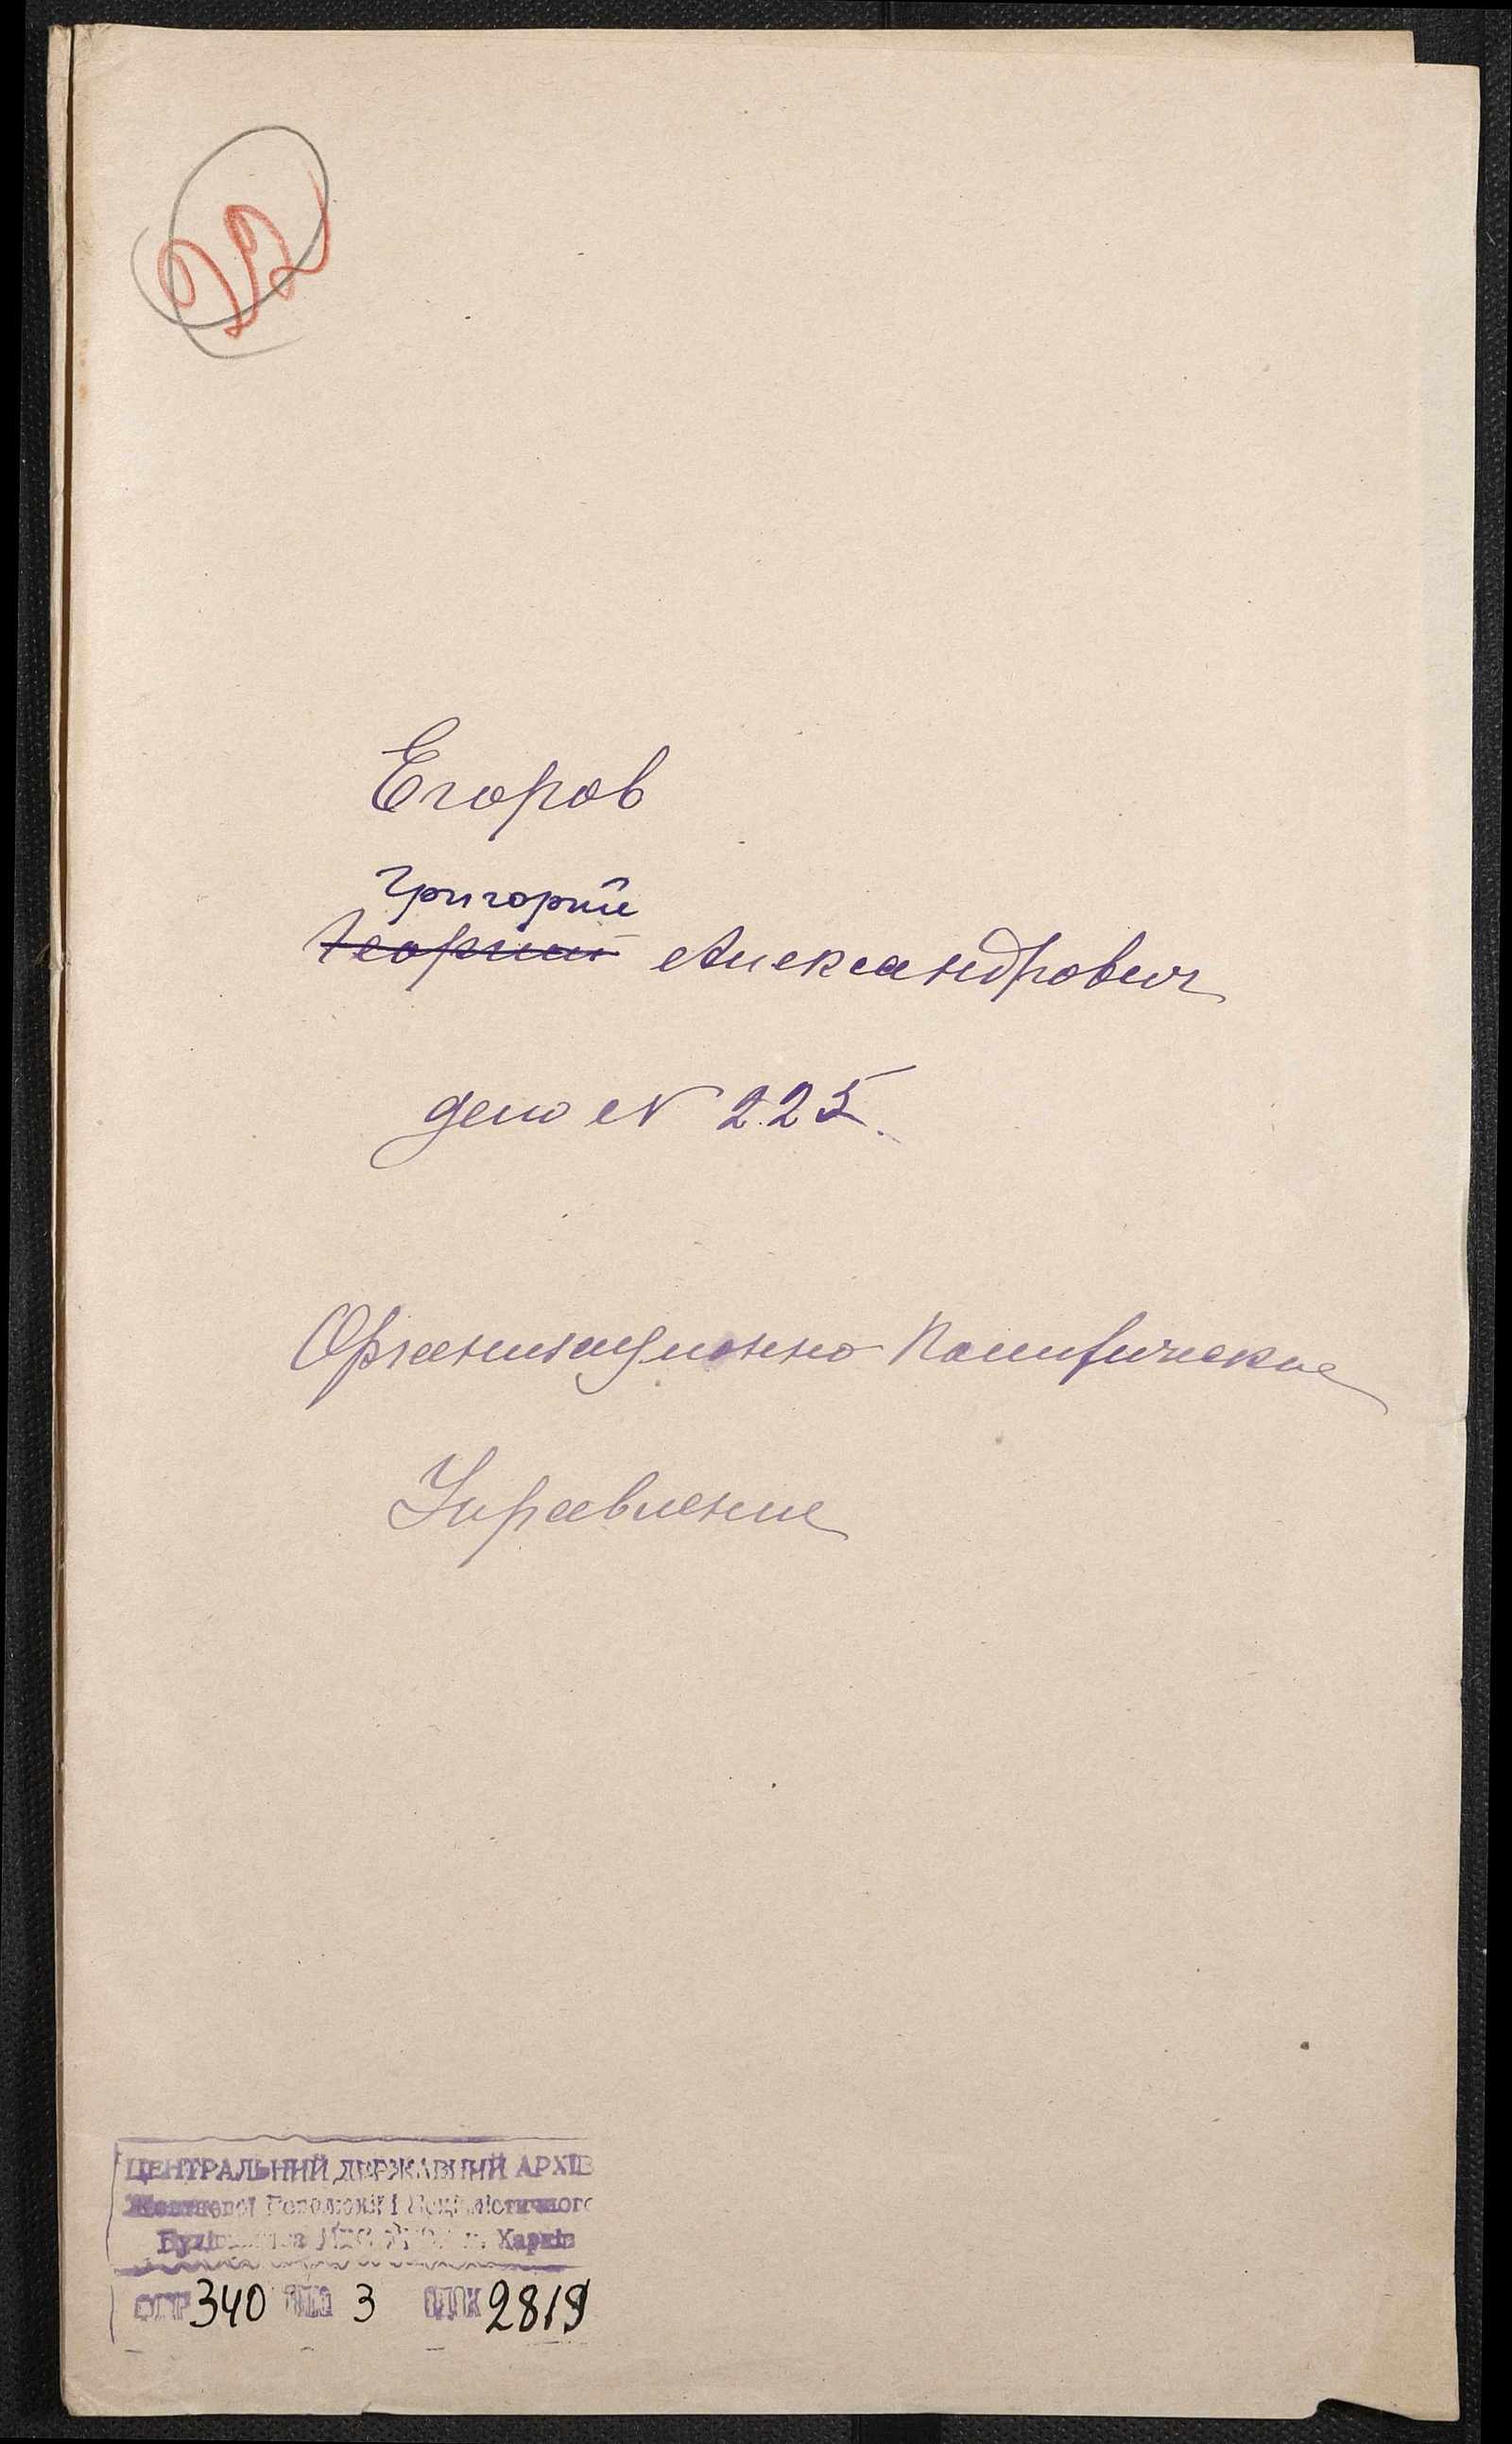 22
Егоров
Григорий
Георгий Александрович
дело № 225.
Организационно-Политические
Управление
ЦЕНТРАЛЬНИЙ ДЕРЖАВНИЙ АРХІВ
Жовтневої Революції і Соціалістичного
Будівництва Харків
340 3 2819